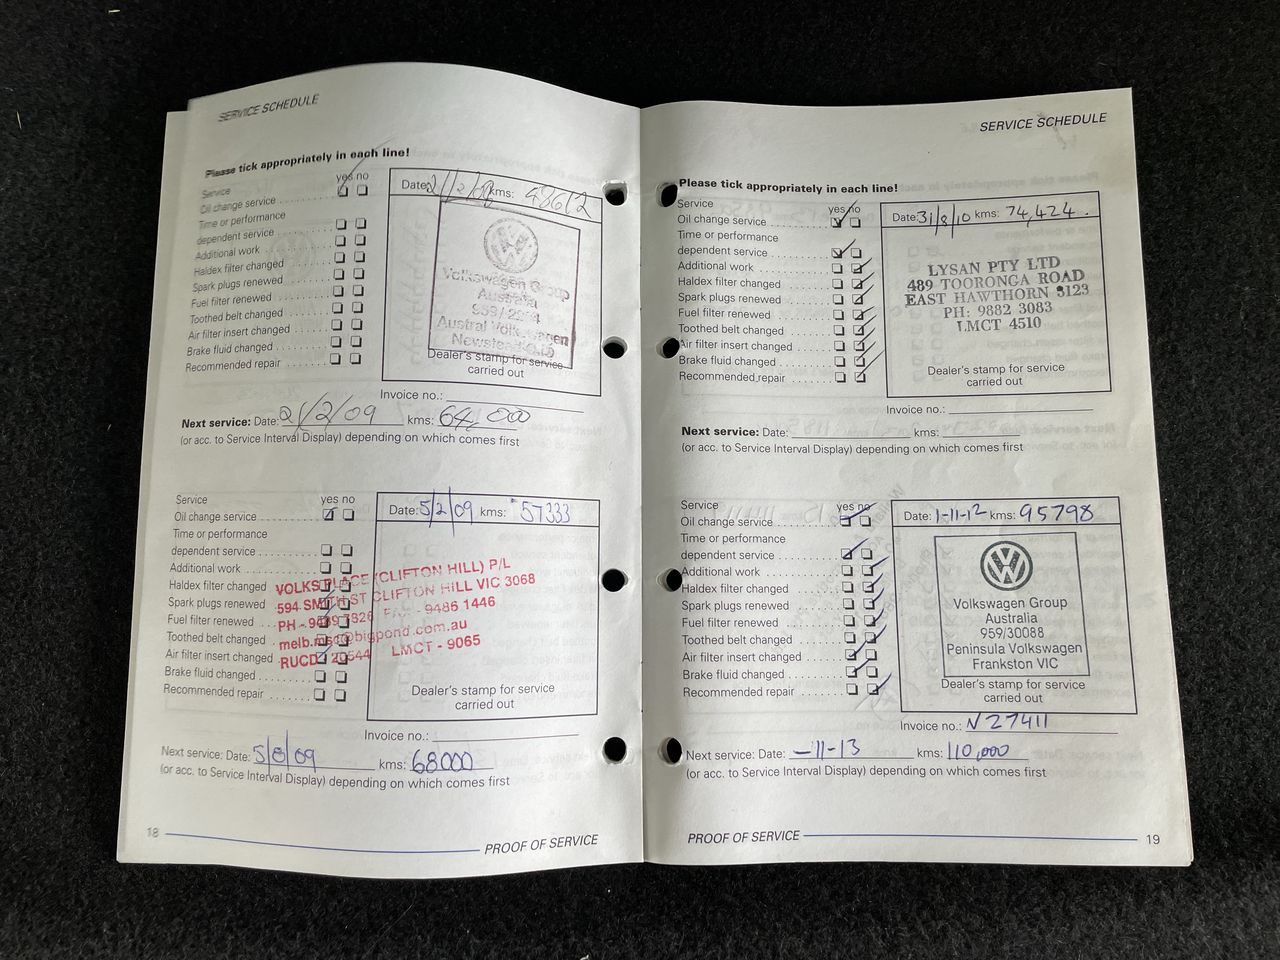 SERVICE SCHEDULE
Please tick appropriately in each line!
yes no
Service
Oil change service
Time or performance
dependent service
Additional work
Haldex filter changed
Spark plugs renewed
Fuel filter renewed
Toothed belt changed
Air filter insert changed
Brake fluid changed
Recommended repair
Date: kms: 48612
Volkswagen Group
Australia
Austral Volkswagen
Newstead QLD
Dealer's stamp for service
carried out
Invoice no.:
Next service: Date: 21/2/09 kms: 64,000
(or acc. to Service Interval Display) depending on which comes first
Service yes no
Oil change service
Time or performance
dependent service
Additional work
Haldex filter changed
Spark plugs renewed
Fuel filter renewed
Toothed belt changed
Air filter insert changed
Brake fluid changed
Recommended repair
Date: 5/2/09 kms: 57333
VOLKSPLACE (CLIFTON HILL) P/L
594 SMITH ST CLIFTON HILL VIC 3068
PH - FAX - 9486 1446
@bigpond.com.au
20544 LMCT - 9065
Dealer's stamp for service
carried out
Invoice no.:
Next service: Date: 5/8/09 kms: 68000
(or acc. to Service Interval Display) depending on which comes first
18 PROOF OF SERVICE
SERVICE SCHEDULE
Please tick appropriately in each line!
Service yes no
Oil change service
Time or performance
dependent service
Additional work
Haldex filter changed
Spark plugs renewed
Fuel filter renewed
Toothed belt changed
Air filter insert changed
Brake fluid changed
Recommended repair
Date: 31/8/10 kms: 74,424.
LYSAN PTY LTD
489 TOORONGA ROAD
EAST HAWTHORN 3123
PH: 9882 3083
LMCT 4510
Dealer's stamp for service
carried out
Invoice no.:
Next service: Date: kms:
(or acc. to Service Interval Display) depending on which comes first
Service yes no
Oil change service
Time or performance
dependent service
Additional work
Haldex filter changed
Spark plugs renewed
Fuel filter renewed
Toothed belt changed
Air filter insert changed
Brake fluid changed
Recommended repair
Date: 1-11-12 kms: 95798
Volkswagen Group
Australia
959/30088
Peninsula Volkswagen
Frankston VIC
Dealer's stamp for service
carried out
Invoice no.: N27411
Next service: Date: -11-13 kms: 110,000
(or acc. to Service Interval Display) depending on which comes first
PROOF OF SERVICE 19